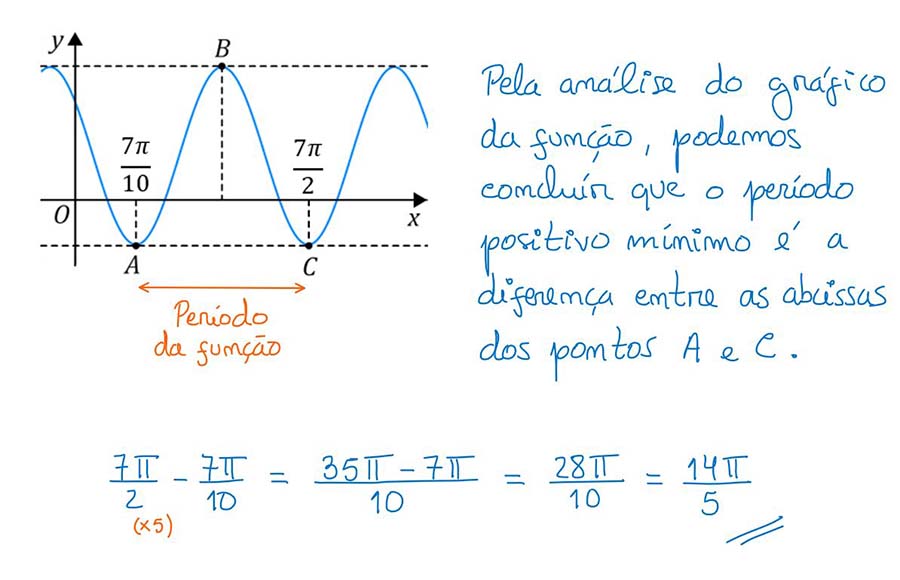 y
B
7π/10
7π/2
O
x
A
C
Período
da função
Pela análise do gráfico
da função, podemos
concluir que o período
positivo mínimo é a
diferença entre as abcissas
dos pontos A e C.
7π/2 - 7π/10 = 35π - 7π/10 = 28π/10 = 14π/5
(x5)